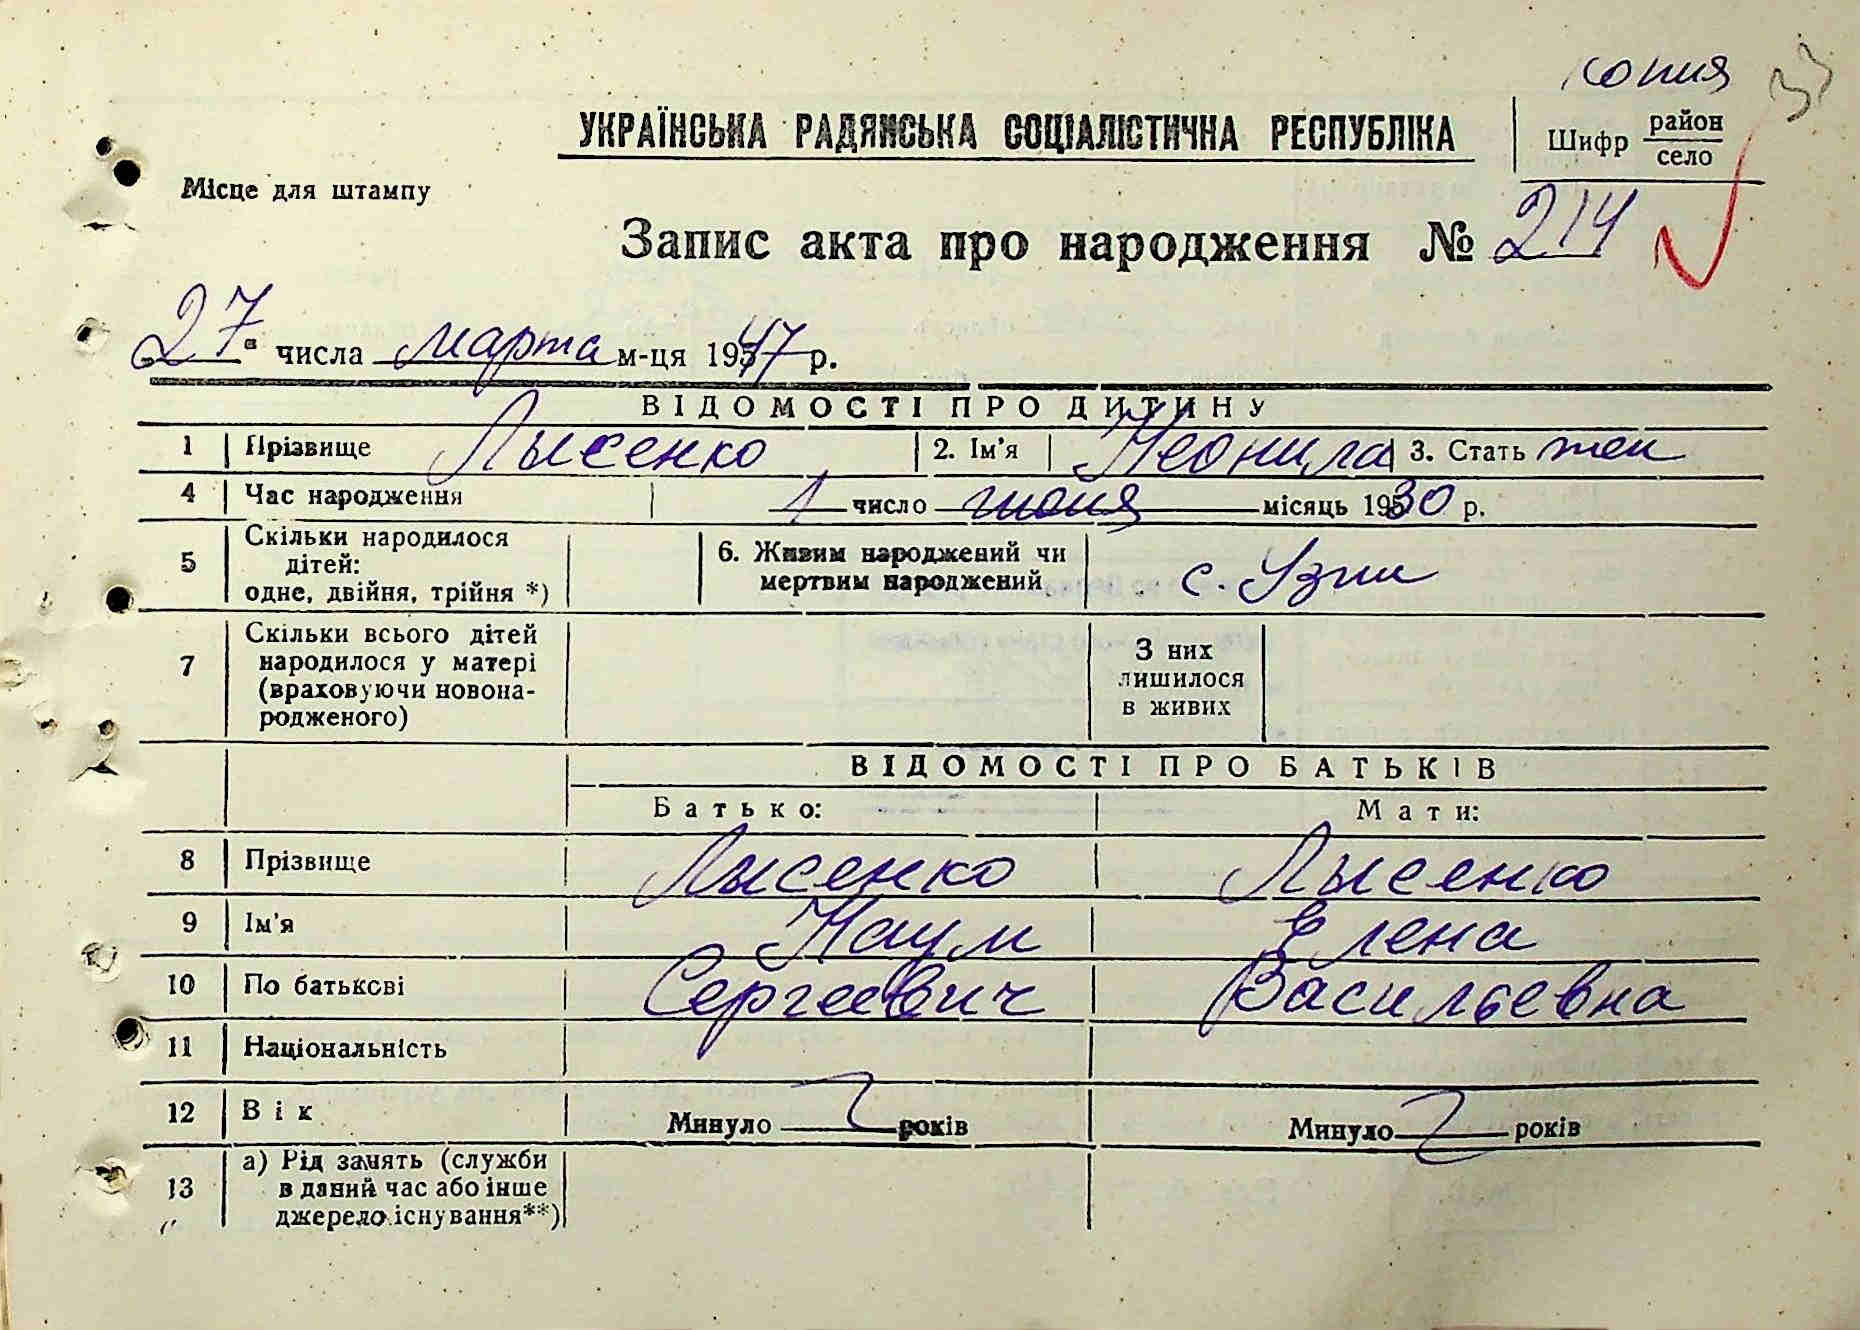 копия
УКРАЇНСЬКА РАДЯНСЬКА СОЦІАЛІСТИЧНА РЕСПУБЛІКА
Шифр район село
Місце для штампу
Запис акта про народження № 214
27 числа марта м-ця 1947 р.
ВІДОМОСТІ ПРО ДИТИНУ
1 Прізвище Лысенко 2. Ім'я Неонила 3. Стать жен
4 Час народження 1 число июня місяць 1930 р.
5 Скільки народилося дітей: одне, двійня, трійня *) 6. Живим народжений чи мертвим народжений с. Узин
7 Скільки всього дітей народилося у матері (враховуючи новонародженого) З них лишилося в живих
ВІДОМОСТІ ПРО БАТЬКІВ
Батько: Мати:
8 Прізвище Лысенко Лысенко
9 Ім'я Наум Елена
10 По батькові Сергеевич Васильевна
11 Національність
12 Вік Минуло років Минуло років
13 а) Рід занять (служби в даний час або інше джерело існування**)